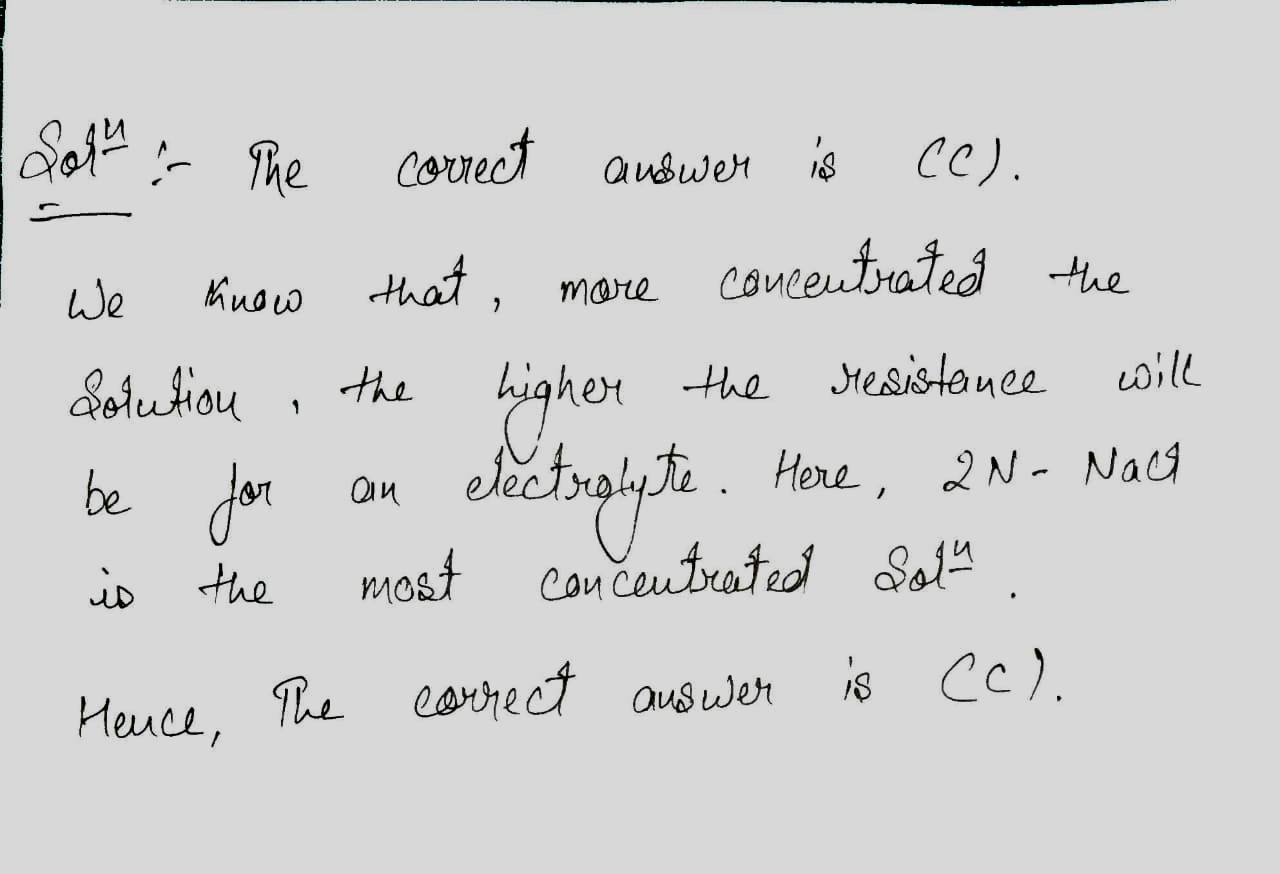 Solⁿ :- The correct answer is (C).
We know that, more concentrated the
Solution, the higher the resistance will
be for an electrolyte. Here, 2N- NaCl
is the most concentrated Solⁿ.
Hence, The correct answer is (C).